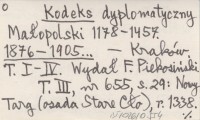 Kodeks dyplomatyczny
Małopolski 1178-1457.
1876-1905... — Kraków
T. I-IV. Wydał F. Piekosiński
T. III, nr 655, s. 29: Nowy
Targ (osada Stare Cło), r. 1338.